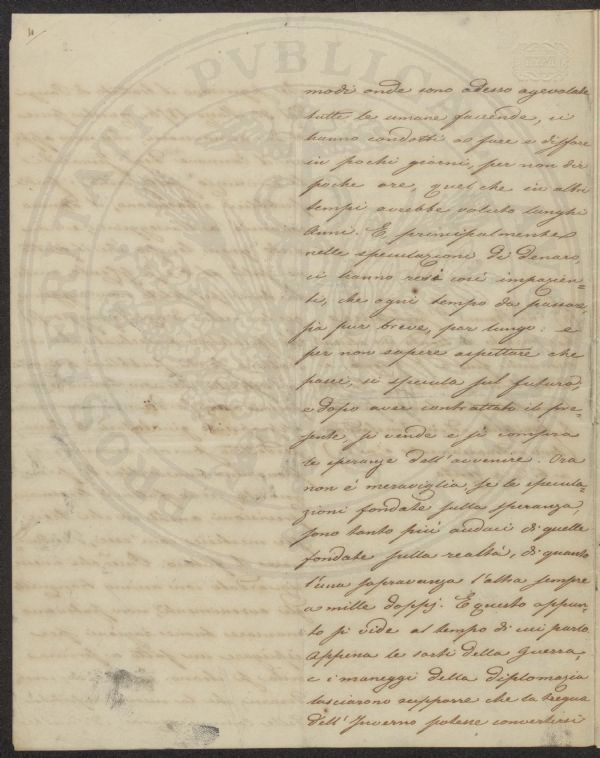 modi onde sono adesso agevolate
tutte le umane faccende, ci
hanno condotti a fare e disfare
in pochi giorni, per non dir
poche ore, quel che in altri
tempi avrebbe voluto lunghi
Anni. E principalmente
nelle speculazioni di Denaro
ci hanno resi così impazien-
ti, che ogni tempo da passar,
sia pur breve, par lungo: e
per non sapere aspettare che
passi, si specula sul futuro,
e dopo aver contrattato il pre-
sente, si vende e si compra
le speranze dell'avvenire. Ora
non è meraviglia, se le specula-
zioni fondate sulla speranza,
sono tanto più audaci di quelle
fondate sulla realtà, di quanto
l'una sopravanza l'altra sempre
a mille doppj. E questo appun-
to si vide al tempo di cui parlo
Appena le sorti della Guerra,
e i maneggi della diplomazia
lasciarono supporre che la tregua
dell'Inverno potesse convertirsi
PROSPERITATI PVBLICAE